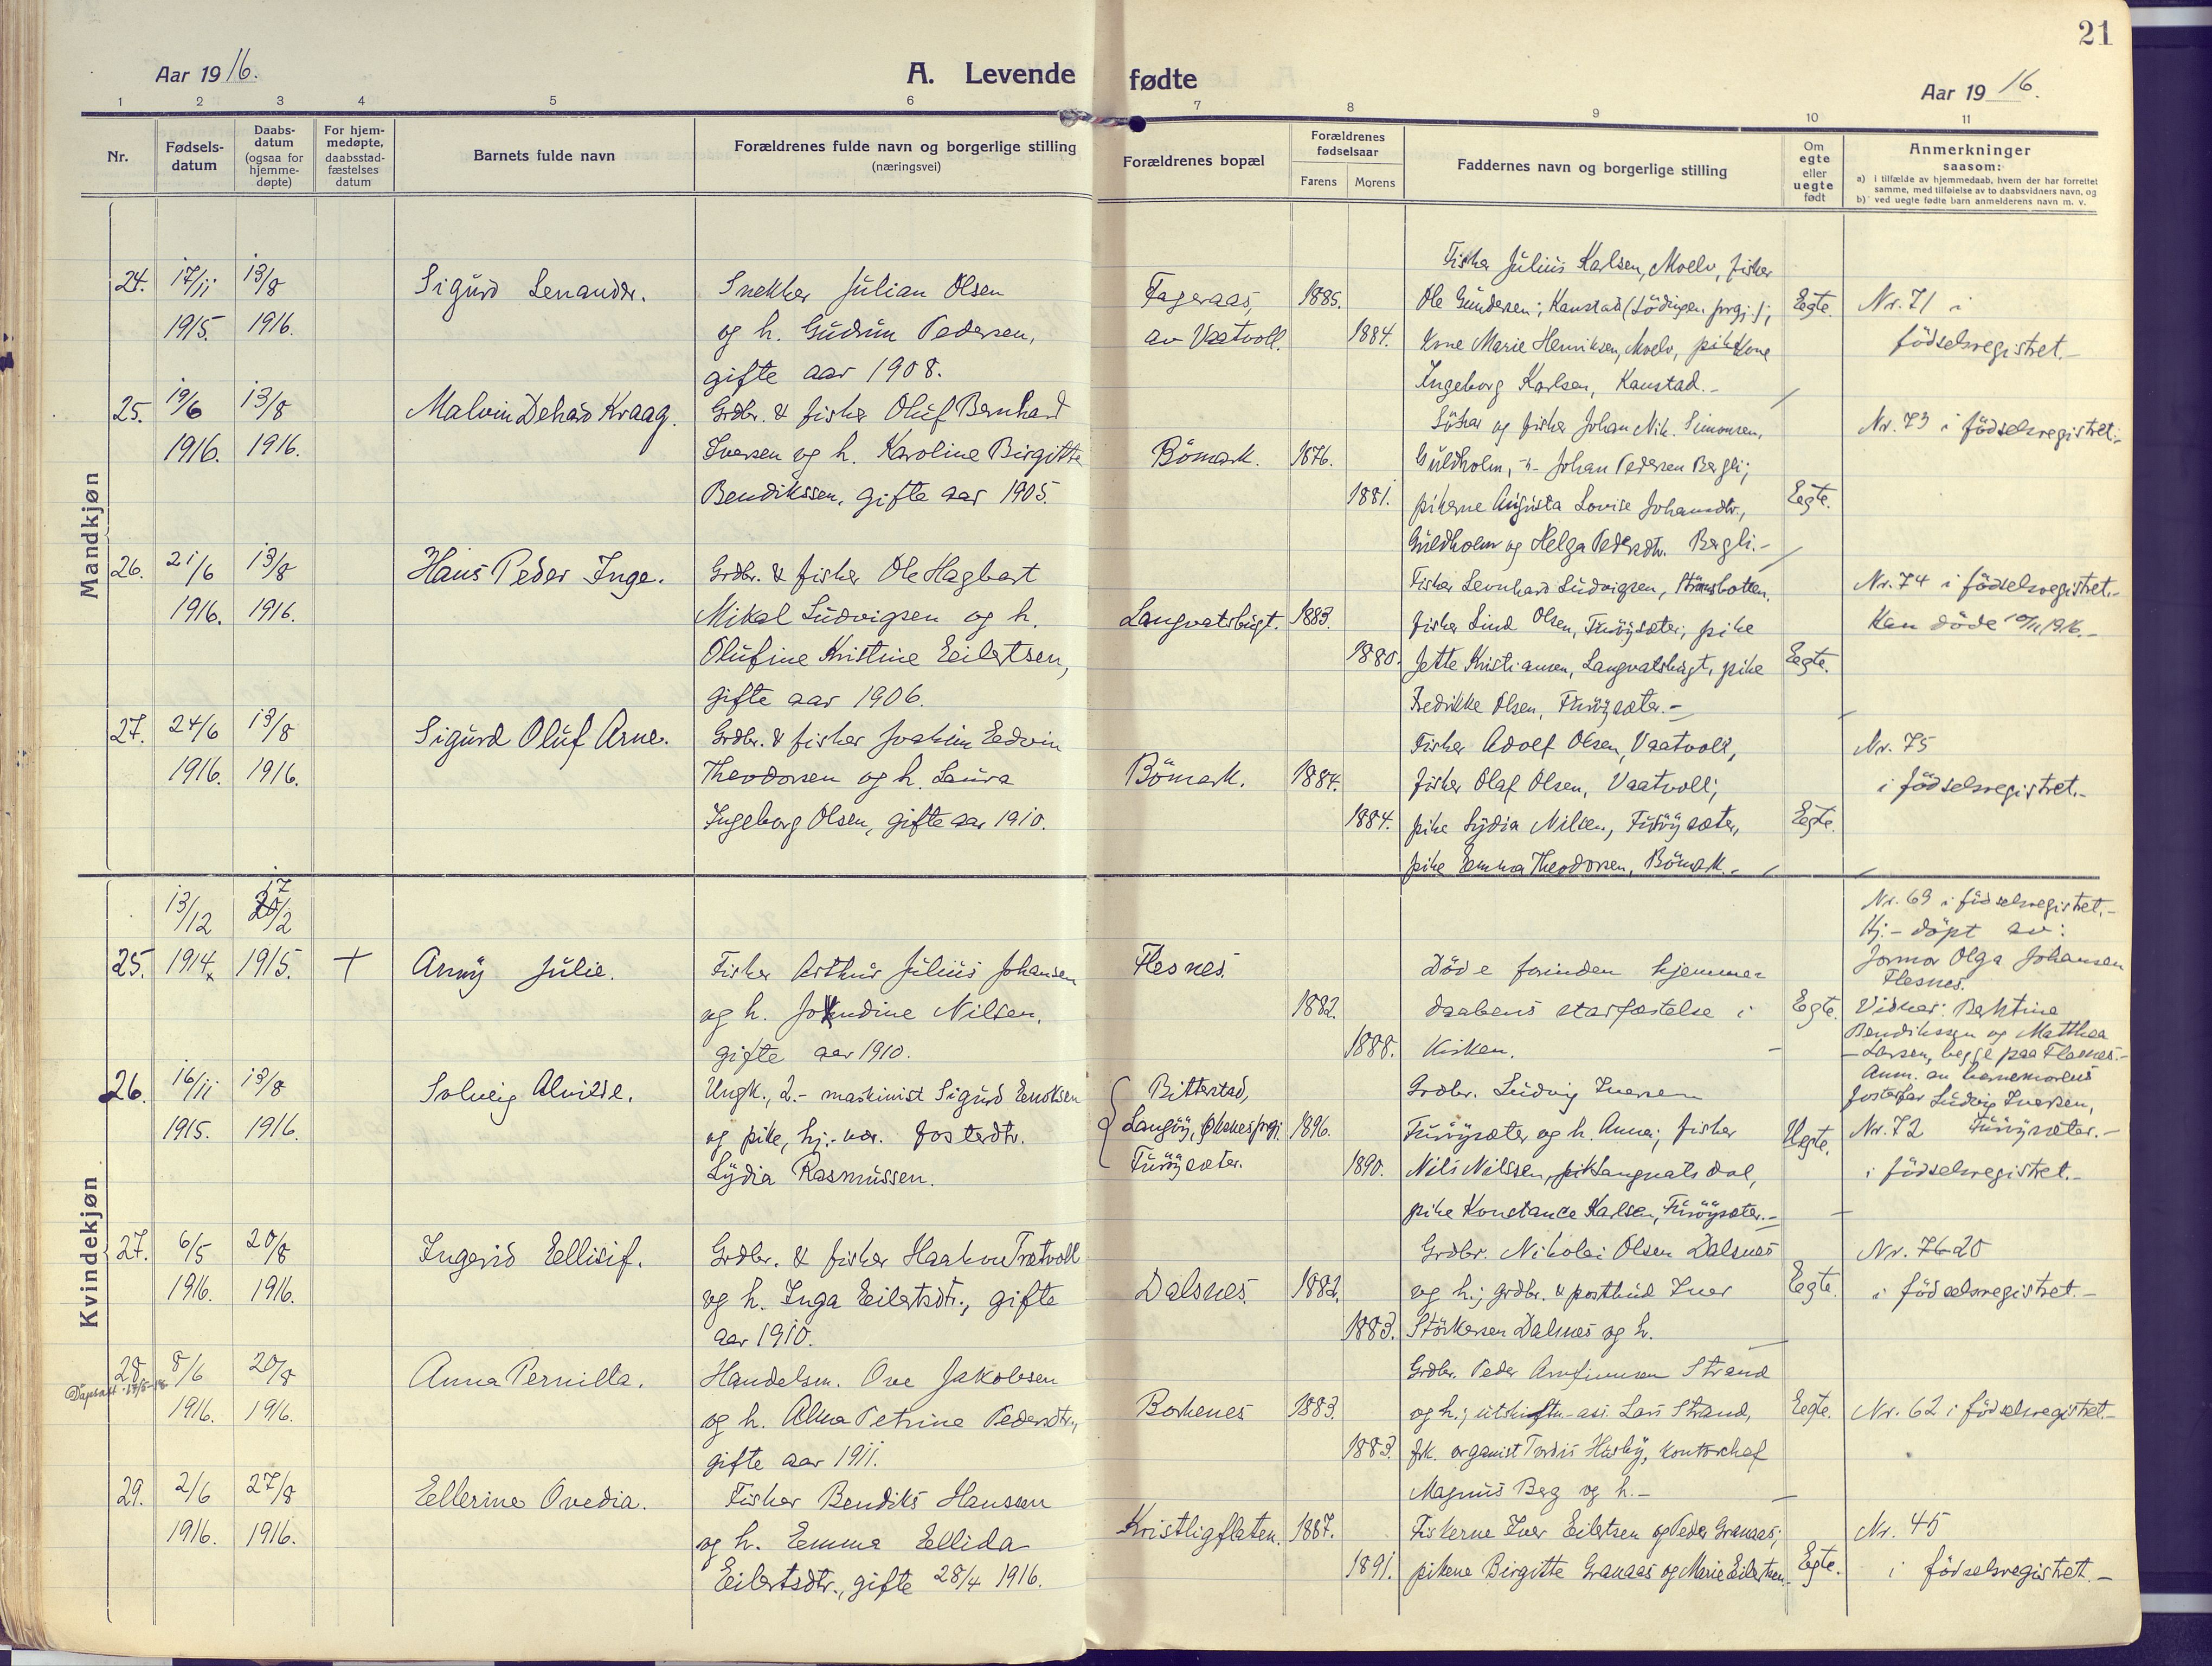 21
Aar 1916.
A. Levende fødte
Aar 1916.
1 2 3 4 5 6 7 8 9 10 11
Nr.
Fødsels-
datum
Daabs-
datum
(ogsaa for
hjemme-
døpte)
For hjem-
medøpte,
daabsstad-
fæstelses
datum
Barnets fulde navn
Forældrenes fulde navn og borgerlige stilling
(næringsvei)
Forældrenes bopæl
Forældrenes
fødselsaar
Farens Morens
Faddernes navn og borgerlige stilling
Om
egte
eller
uegte
født
Anmerkninger
saasom:
a) i tilfælde av hjemmedaab, hvem der har forrettet
samme, med tilføielse av to daabsvidners navn, og
b) ved uegte fødte barn anmelderens navn m. v.
Mandkjøn
24. 17/11 13/8
1915. 1916.
Sigurd Lenander.
Snekker Julian Olsen
og h. Gudrun Pedersen,
gifte aar 1908.
Fageraas,
av Vaatvoll.
1885.
1884.
Fisker Julius Karlsen, Moelv, fisker
Ole Gundersen; Kanstad (Lödingen prgj.);
kone Marie Henriksen, Moelv, kone
Ingeborg Karlsen, Kanstad.-
Egte.
Nr. 71 i
födselsregistret.-
25. 19/6 13/8
1916. 1916.
Malvin Dehard Kraag.
Grdbr. & fisker Oluf Bernhard
Iversen og h. Karoline Birgitte
Bendikssen, gifte aar 1905.
Bömark.
1876.
1881.
og fisker Johan Nik. Simonsen,
Guldholm, -"- Johan Pedersen Bergli;
pikerne Augusta Lovise Johansdtr.,
Guldholm og Helga Pedersdtr. Bergli.-
Egte.
Nr. 73 i födselsregistret.-
26. 21/6 13/8
1916. 1916.
Hans Peder Inge.
Grdbr. & fisker Ole Hagbart
Mikal Ludvigsen og h.
Olufine Kristine Eilertsen,
gifte aar 1906.
Langvatsbugt.
1883.
1880.
Fisker Leonhard Ludvigsen,
fisker Lind Olsen, Furöysæter, pike
Jette Kristiansen, Langvatsbugt, pike
Fredrikke Olsen, Furöysæter.-
Egte.
Nr. 74 i födselsregistret.-
Han döde 10/11 1916.-
27. 24/6 13/8
1916. 1916.
Sigurd Oluf Arne.
Grdbr. & fisker Joakim Edvin
Theodorsen og h. Laura
Ingeborg Olsen, gifte aar 1910.
Bömark.
1884.
1884.
Fisker Adolf Olsen, Vaatvoll,
fisker Olaf Olsen, Vaatvoll;
pike Lydia Nilsen, Furöysæter,
pike Emma Theodorsen, Bömark.-
Egte.
Nr. 75
i födselsregistret.-
Kvindekjøn
13/12 17/2
25. 1914. 1915. +
Anny Julie.
Fisker Arthur Julius Johansen
og h. Nilsen,
gifte aar 1910.
Flesnes.
1882.
1888.
Döde forinden hjemme-
daabens stadfæstelse i
Kirken.
Egte.
Nr. 69 i födselsregistret.-
Hj.-döpt av:
Jormor Olga Johansen
Flesnes.
Vidner: Bertine
Bendikssen og Matthea
Larsen, begge paa Flesnes.-
26. 16/11 13/8
1915. 1916.
Solveig Alvilde.
Ungk., 2.- maskinist Sigurd Enoksen
og pike, hj.-vær. fosterdtr.
Lydia Rasmussen.
Bitterstad,
Langöy, Öksnes prgj.
Furöysæter.
1896.
1890.
Grdbr. Ludvig Iversen
Furöysæter og h. Anna; fisker
Nils Nilssen, Langvatsdal,
pike Konstance Karlsen, Furöysæter.-
Uegte.
Anm. av barnemorens
fosterfar Ludvig Iversen,
Nr. 72 Furöysæter.-
i födselsregistret.-
27. 6/5 20/8
1916. 1916.
Ingerid Ellisif.
Grdbr. & fisker Haakon Trætvoll
og h. Inga Eilertsdtr., gifte
aar 1910.
Dalsnes.
1882.
1883.
Grdbr. Nikolai Olsen Dalsnes
og h.; grdbr. & postbud Iver
Störkersen Dalsnes og h.
Egte.
Nr. 76 20
i födselsregistret.-
28. 8/6 20/8
1916. 1916.
Anna Pernilla.
Handelsm. Ove Jakobsen
og h. Alma Petrine Pedersdtr.,
gifte aar 1911.
Borkenes
1883.
1883.
Grdbr. Peder Arnfinnsen Strand
og h.; utskiftn.-ass. Lars Strand,
frk. organist Tordis Husby, kontorchef
Magnus Berg og h.-
Egte.
Nr. 62 i födselsregistret.-
29. 2/6 27/8
1916. 1916.
Ellerine Ovedia.
Fisker Bendiks Hanssen
og h. Emma Ellida
Eilertsdtr., gifte 28/4 1916.
Kristligflaten.
1887.
1891.
Fiskerne Iver Eilertsen og Peder Granaas;
pikene Birgitte Granaas og Marie Eilertsen.-
Egte.
Nr. 45
i födselsregistret.-